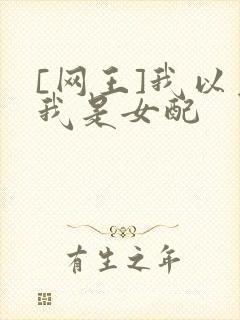 [网王]我以
我是女配
有生之年